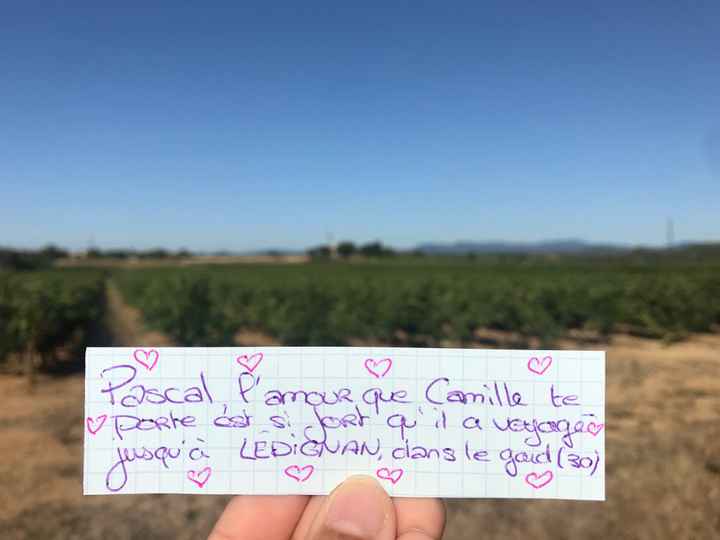 Pascal, l'amour que Camille te
porte est si fort qu'il a voyagé
jusqu'à LÉDIGNAN, dans le gard (30)